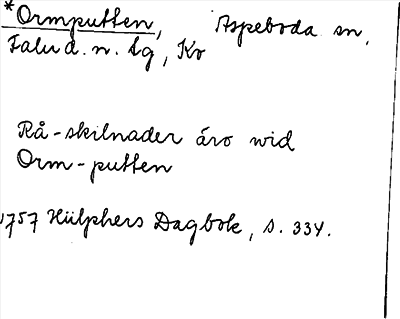 *Ormputten, Aspeboda sn,
Falu d. n. tg, Ko
Rå-skilnader äro wid
Orm-putten
1757 Hülphers Dagbok, s. 334.